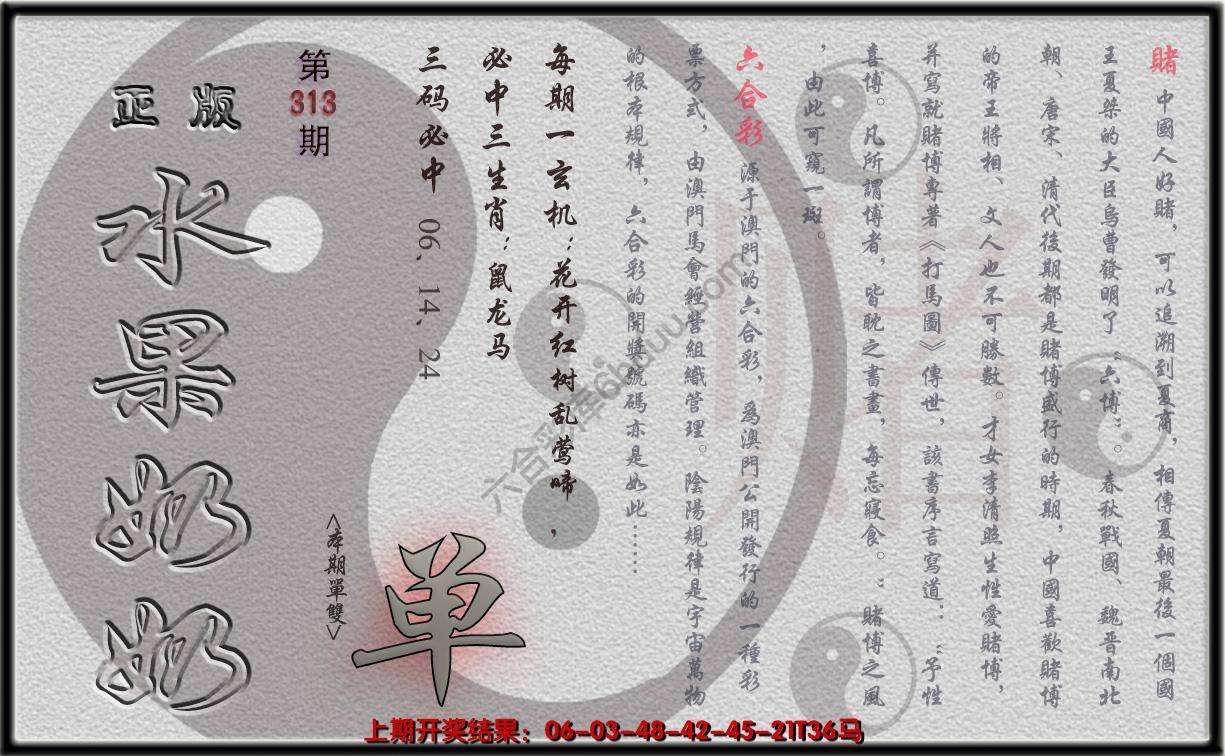 賭 中國人好賭，可以追溯到夏商，相傳夏朝最後一個國
王夏桀的大臣烏曹發明了“六博”。春秋戰國、魏晋南北
朝、唐宋、清代後期都是賭博盛行的時期，中國喜歡賭博
的帝王將相、文人也不可勝數。才女李清照生性愛賭博，
并寫就賭博專著《打馬圖》傳世，該書序言寫道：“予性
喜博。凡所謂博者，皆耽之書畫，每忘寢食。”賭博之風
，由此可窺一斑。
六合彩 源于澳門的六合彩，爲澳門公開發行的一種彩
票方式，由澳門馬會經營組織管理。陰陽規律是宇宙萬物
的根本規律，六合彩的開獎號碼亦是如此……
每期一玄机：花开红树乱莺啼，
必中三生肖：鼠龙马
三码必中 06、14、24
第313期
正版
水果奶奶
<本期單雙>
单
賭
六合彩泽6hduu.com
上期开奖结果：06-03-48-42-45-21T36马